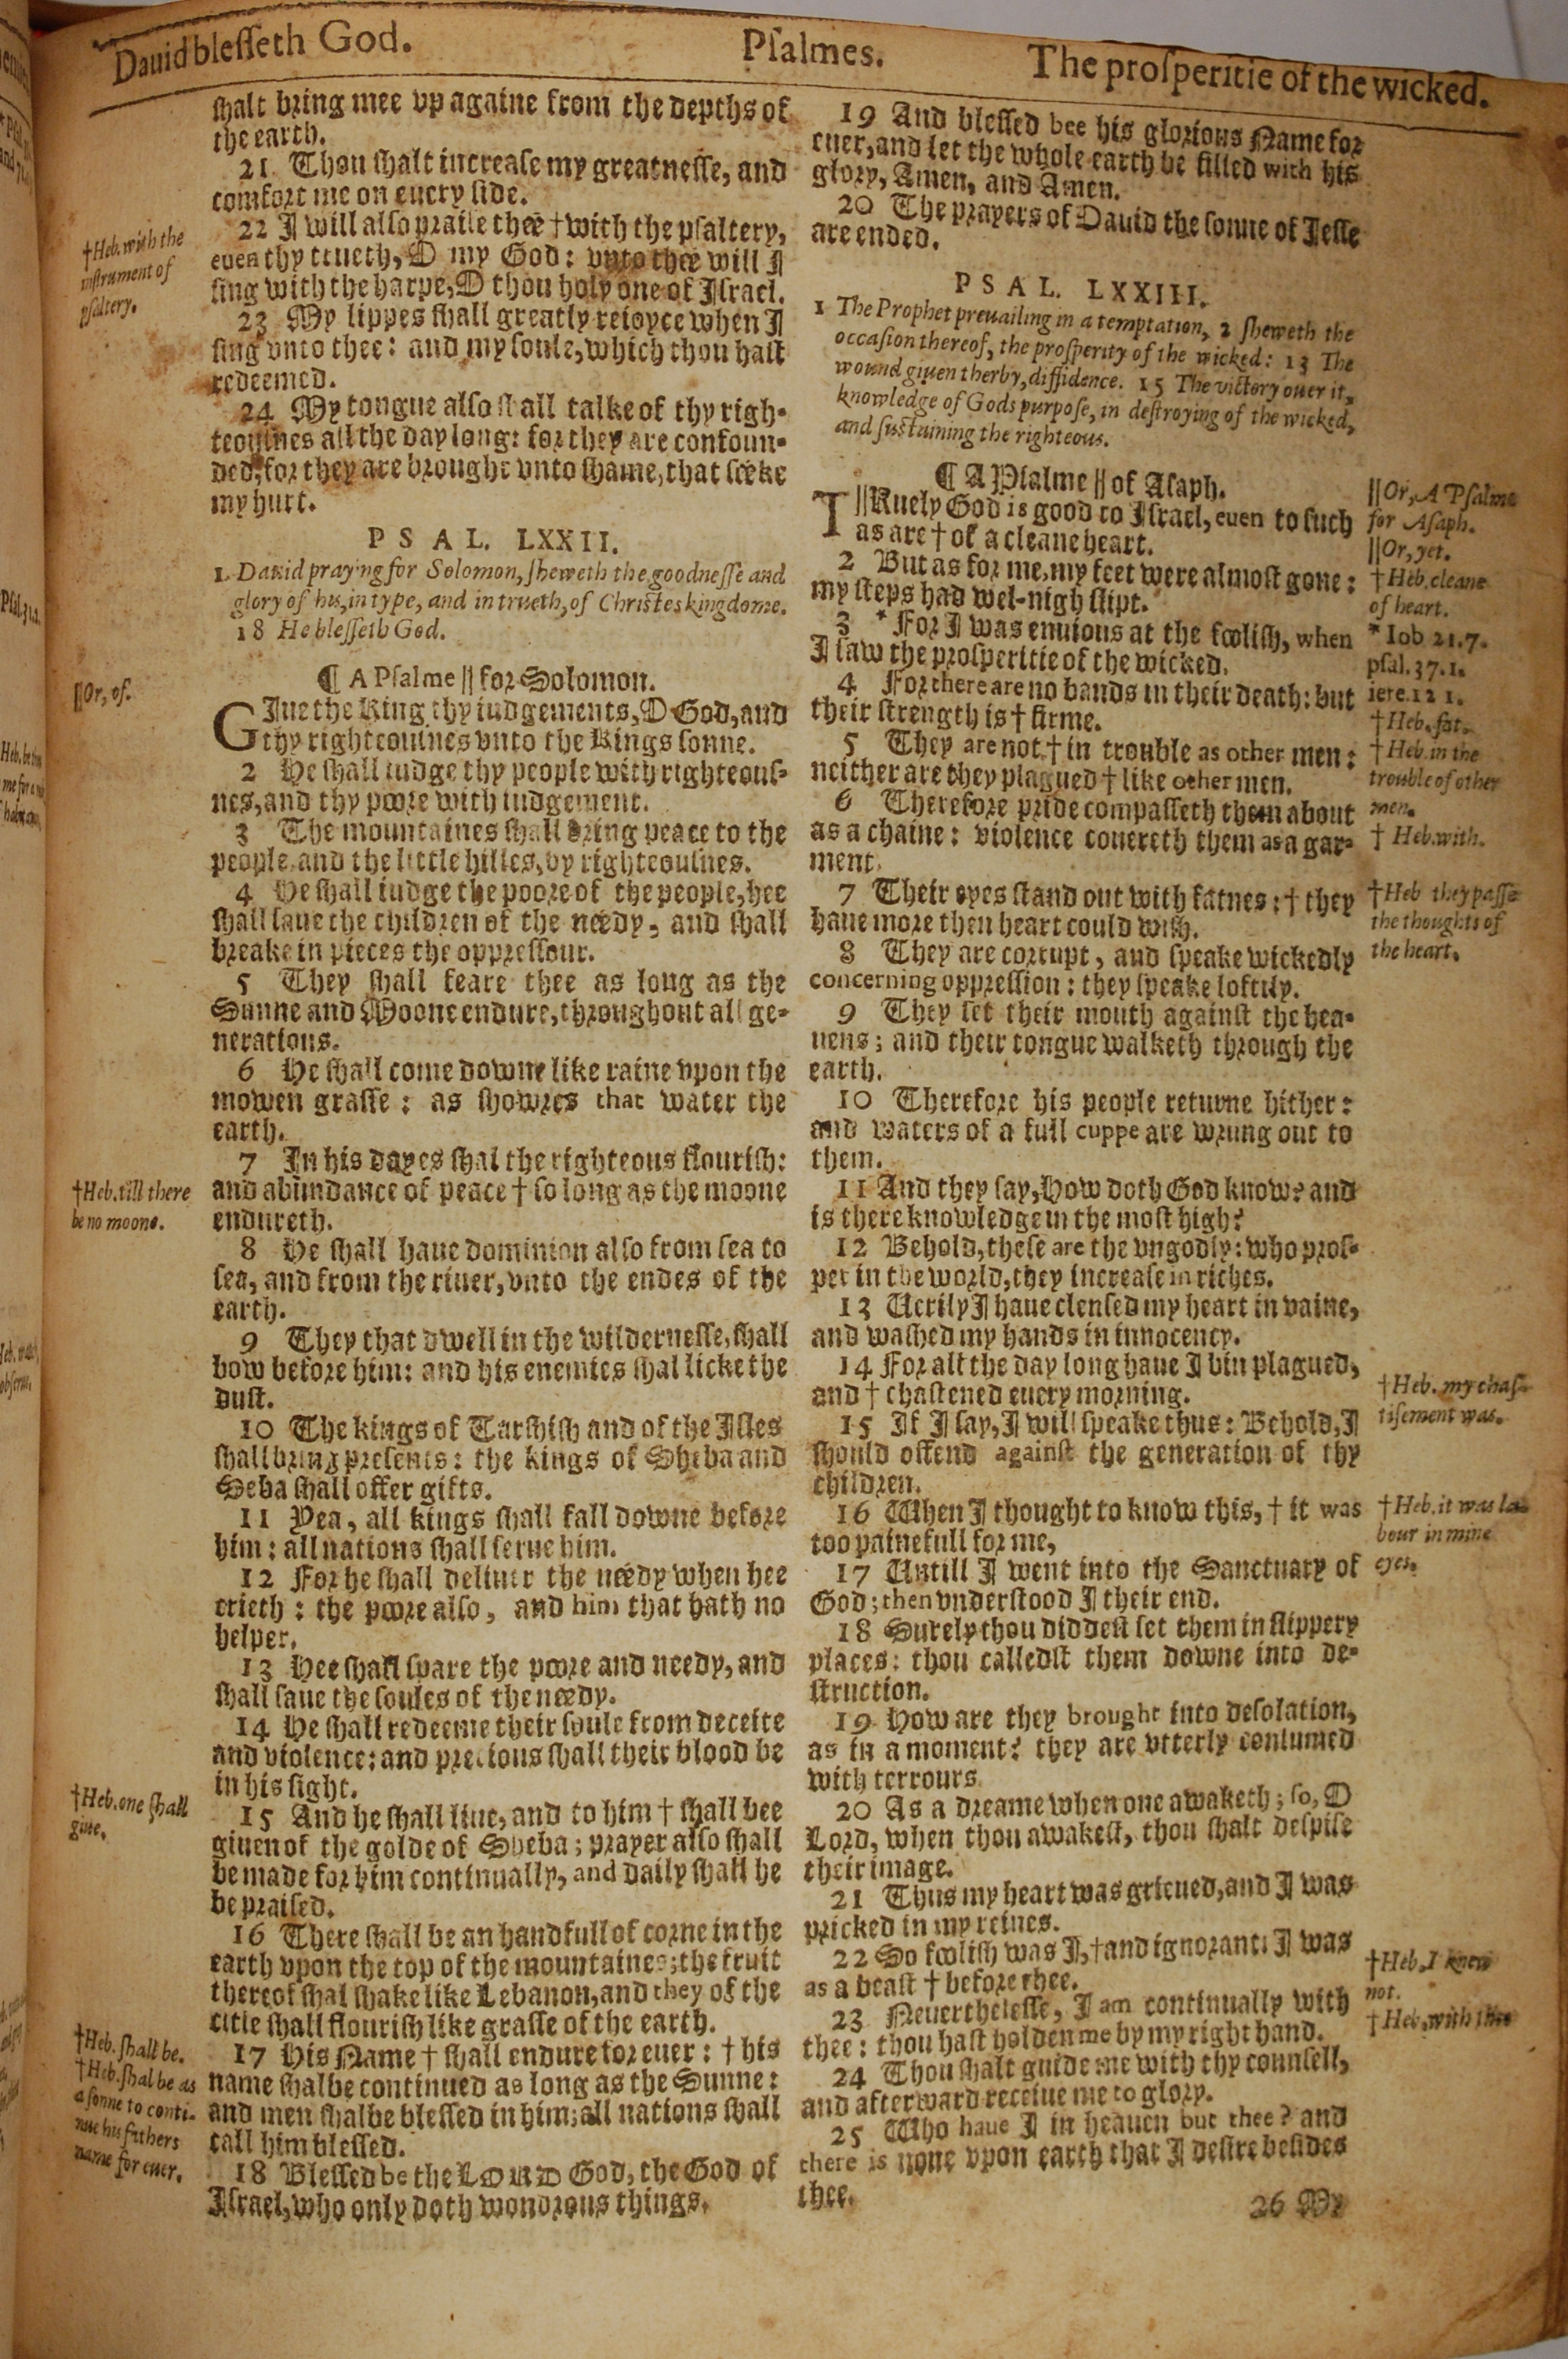 Dauid blesseth God.
Psalmes.
The prosperitie of the wicked.
shalt bring mee vp againe from the depths of
the earth.
21 Thou shalt increase my greatnesse, and
comfort me on euery side.
22 I will also praise thee † with the psaltery,
euen thy trueth, O my God: vnto thee will I
sing with the harpe, O thou holy one of Israel.
23 My lippes shall greatly reioyce when I
sing vnto thee: and my soule, which thou hast
redeemed.
24 My tongue also shall talke of thy righ-
teousnes all the day long: for they are confoun-
ded, for they are brought vnto shame, that seeke
my hurt.
†Heb. with the
instrument of
psaltery.
PSAL. LXXII.
1 Dauid praying for Solomon, sheweth the goodnesse and
glory of his, in type, and in trueth, of Christes kingdome.
18 He blesseth God.
¶ A Psalme || for Solomon.
||Or, of.
GIue the King thy iudgements, O God, and
thy righteousnes vnto the Kings sonne.
2 He shall iudge thy people with righteous-
nes, and thy poore with iudgement.
3 The mountaines shall bring peace to the
people, and the little hilles, by righteousnes.
4 He shall iudge the poore of the people, hee
shall saue the children of the needy, and shall
breake in pieces the oppressour.
5 They shall feare thee as long as the
Sunne and Moone endure, throughout all ge-
nerations.
6 He shall come downe like raine vpon the
mowen grasse: as showres that water the
earth.
7 In his dayes shal the righteous flourish:
and abundance of peace † so long as the moone
endureth.
†Heb. till there
be no moone.
8 He shall haue dominion also from sea to
sea, and from the riuer, vnto the endes of the
earth.
9 They that dwell in the wildernesse, shall
bow before him: and his enemies shal licke the
dust.
10 The kings of Tarshish and of the Isles
shall bring presents: the kings of Sheba and
Seba shall offer gifts.
11 Yea, all kings shall fall downe before
him: all nations shall serue him.
12 For he shall deliuer the needy when hee
crieth: the poore also, and him that hath no
helper.
13 Hee shall spare the poore and needy, and
shall saue the soules of the needy.
14 He shall redeeme their soule from deceite
and violence: and precious shall their blood be
in his sight.
15 And he shall liue, and to him † shall bee
giuen of the golde of Sheba; prayer also shall
be made for him continually, and daily shall he
be praised.
†Heb. one shall
giue.
16 There shall be an handfull of corne in the
earth vpon the top of the mountaines; the fruit
thereof shal shake like Lebanon, and they of the
citie shall flourish like grasse of the earth.
17 His Name † shall endure for euer: † his
name shalbe continued as long as the Sunne:
and men shalbe blessed in him; all nations shall
call him blessed.
†Heb. shall be.
†Heb. shal be as
a sonne to conti-
nue his fathers
name for euer.
18 Blessed be the LORD God, the God of
Israel, who only doth wondrous things.
19 And blessed bee his glorious Name for
euer, and let the whole earth be filled with his
glory, Amen, and Amen.
20 The prayers of Dauid the sonne of Iesse
are ended.
PSAL. LXXIII.
1 The Prophet preuailing in a temptation, 2 sheweth the
occasion thereof, the prosperity of the wicked: 13 The
wound giuen therby, diffidence. 15 The victory ouer it,
knowledge of Gods purpose, in destroying of the wicked,
and sustaining the righteous.
¶ A Psalme || of Asaph.
T||Ruely God is good to Israel, euen to such
as are † of a cleane heart.
2 But as for me, my feet were almost gone:
my steps had wel-nigh slipt.
3 *For I was enuious at the foolish, when
I saw the prosperitie of the wicked.
4 For there are no bands in their death: but
their strength is † firme.
5 They are not † in trouble as other men:
neither are they plagued † like other men.
6 Therefore pride compasseth them about
as a chaine: violence couereth them as a gar-
ment.
7 Their eyes stand out with fatnes: † they
haue more then heart could wish.
8 They are corrupt, and speake wickedly
concerning oppression: they speake loftily.
9 They set their mouth against the hea-
uens; and their tongue walketh through the
earth.
10 Therefore his people returne hither:
and waters of a full cuppe are wrung out to
them.
11 And they say, How doth God know? and
is there knowledge in the most high?
12 Behold, these are the vngodly: who pros-
per in the world, they increase in riches.
13 Uerily I haue clensed my heart in vaine,
and washed my hands in innocency.
14 For all the day long haue I bin plagued,
and † chastened euery morning.
15 If I say, I will speake thus: Behold, I
should offend against the generation of thy
children.
16 When I thought to know this, † it was
too painefull for me,
17 Untill I went into the Sanctuary of
God; then vnderstood I their end.
18 Surely thou diddest set them in slippery
places: thou calledst them downe into de-
struction.
19 How are they brought into desolation,
as in a moment? they are vtterly consumed
with terrours.
20 As a dreame when one awaketh; so, O
Lord, when thou awakest, thou shalt despise
their image.
21 Thus my heart was grieued, and I was
pricked in my reines.
22 So foolish was I, † and ignorant: I was
as a beast † before thee.
23 Neuerthelesse, I am continually with
thee: thou hast holden me by my right hand.
24 Thou shalt guide me with thy counsell,
and afterward receiue me to glory.
25 Who haue I in heauen but thee? and
there is none vpon earth that I desire besides
thee.
26 My
||Or, A Psalme
for Asaph.
||Or, yet.
†Heb. cleane
of heart.
*Iob 21.7.
psal. 37.1.
iere. 12 1.
†Heb. fat.
†Heb. in the
trouble of other
men.
† Heb. with.
†Heb they passe
the thoughts of
the heart.
†Heb. my chas-
tisement was.
†Heb. it was la-
bour in mine
eyes.
†Heb. I knew
not.
†Heb. with thee